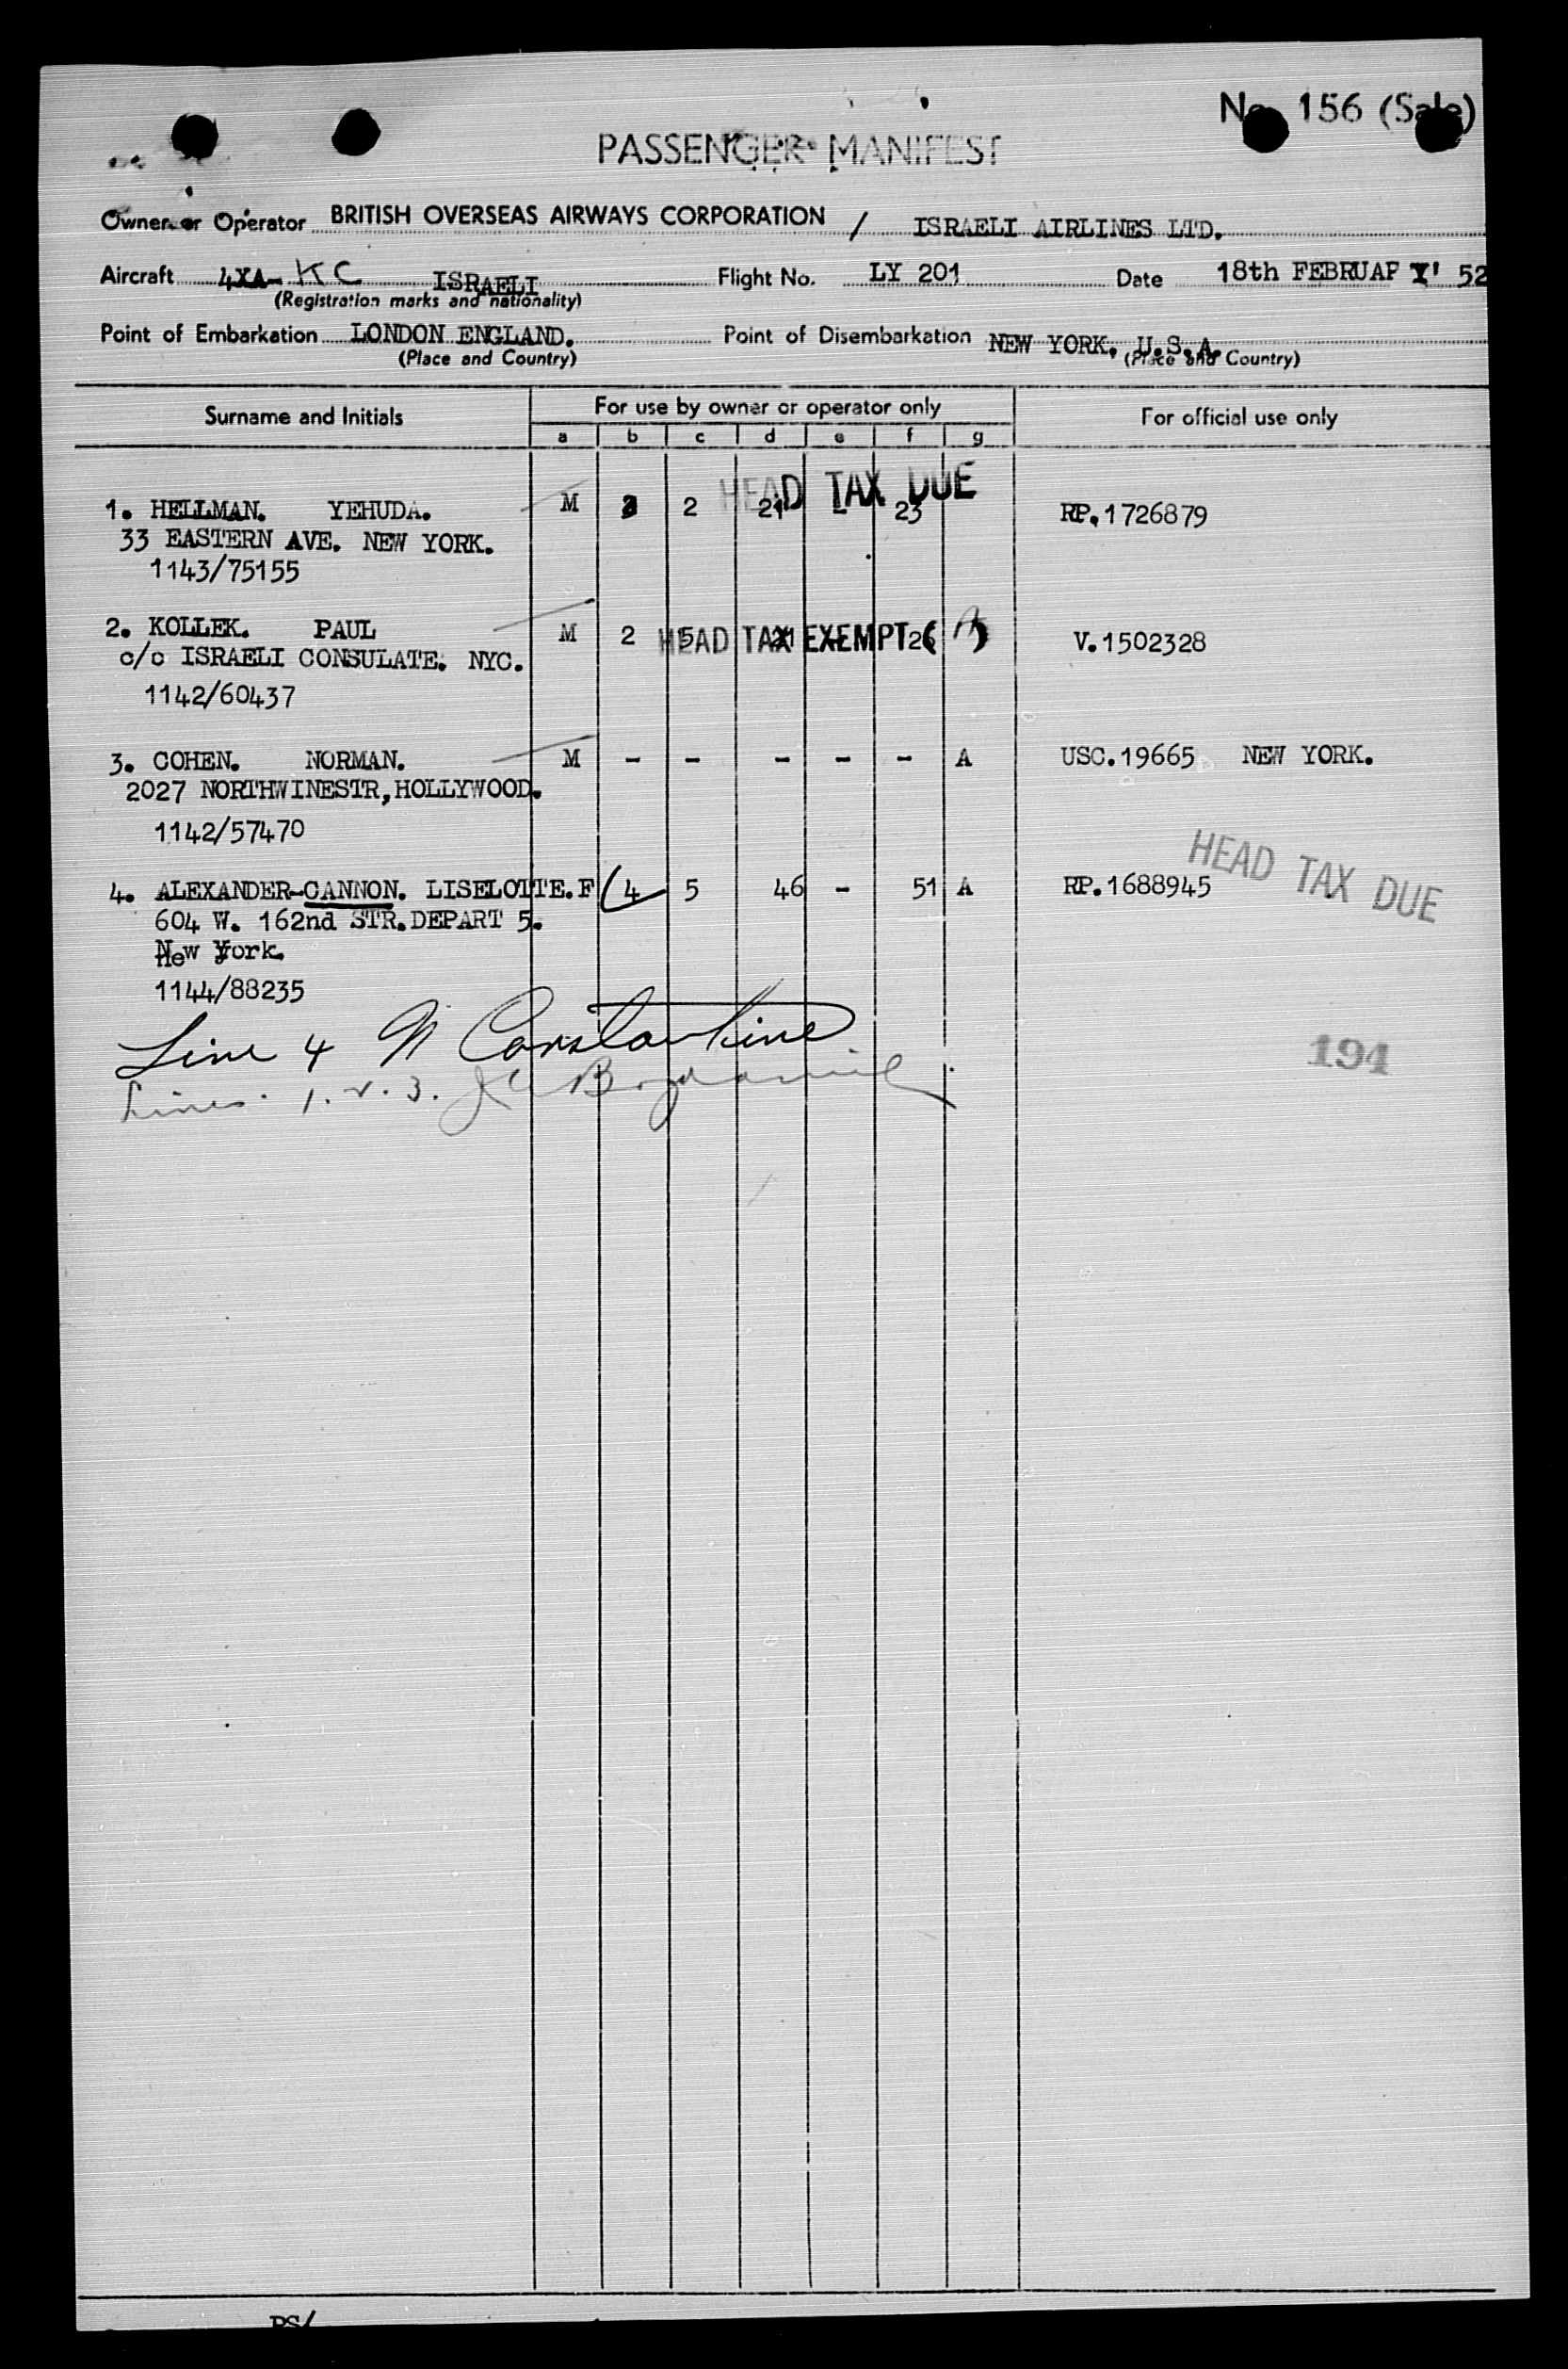 No 156 (Sale)
PASSENGER MANIFEST
Owner or Operator BRITISH OVERSEAS AIRWAYS CORPORATION / ISRAELI AIRLINES LTD.
Aircraft 4XA-KC ISRAELI Flight No. LY 201 Date 18th FEBRUAR Y' 52
(Registration marks and nationality)
Point of Embarkation LONDON ENGLAND. Point of Disembarkation NEW YORK. U.S.A.
(Place and Country) (Place and Country)
Surname and Initials For use by owner or operator only For official use only
a b c d e f g
HEAD TAX DUE
1. HELLMAN. YEHUDA. M 2 21 - 23 RP.1726879
33 EASTERN AVE. NEW YORK.
1143/75155
2. KOLLEK. PAUL M 2 5 21 - 26 V.1502328
HEAD TAX EXEMPT ( )
c/o ISRAELI CONSULATE. NYC.
1142/60437
3. COHEN. NORMAN. M - - - - - A USC.19665 NEW YORK.
2027 NORTHWINESTR,HOLLYWOOD.
1142/57470
4. ALEXANDER-CANNON. LISELOTTE.F 4 5 46 - 51 A RP.1688945
HEAD TAX DUE
604 W. 162nd STR.DEPART 5.
New York.
1144/88235
Line 4 N Constantine
Lines. 1. 2. 3.
194
PS/